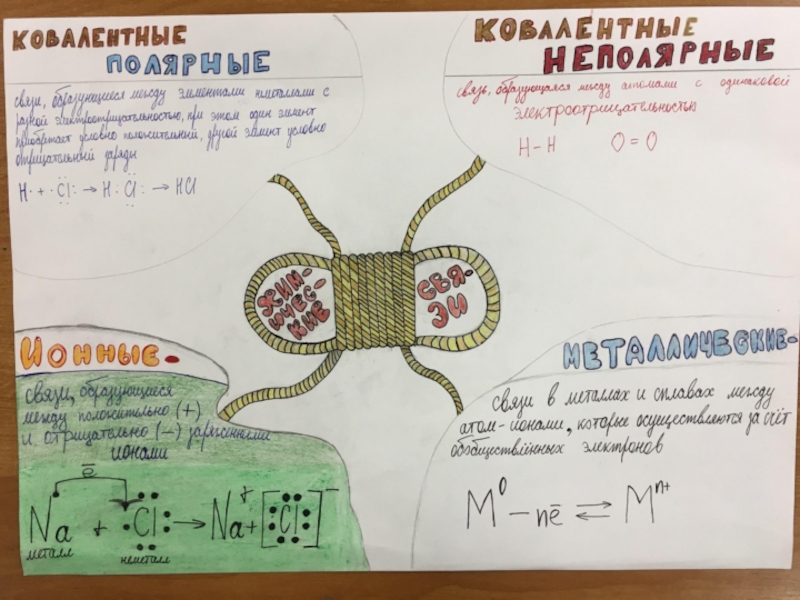 КОВАЛЕНТНЫЕ
ПОЛЯРНЫЕ
связи, образующиеся между элементами неметаллами с
разной электроотрицательностью, при этом один элемент
приобретает условно положительный, другой элемент условно
отрицательный заряды
H· + ·Cl: → H : Cl: → HCl
КОВАЛЕНТНЫЕ
НЕПОЛЯРНЫЕ
связь, образующаяся между атомами с одинаковой
электроотрицательностью
H – H O = O
ХИМ-
ИЧЕС-
КИЕ
СВЯ-
ЗИ
ИОННЫЕ-
связи, образующиеся
между положительно (+)
и отрицательно (–) заряженными
ионами
ē
Na + ·Cl: → Na⁺ + [:Cl:]⁻
металл неметалл
МЕТАЛЛИЧЕСКИЕ-
связи в металлах и сплавах между
атом-ионами, которые осуществляются за счёт
обобществлённых электронов
M⁰ – nē ⇄ Mⁿ⁺